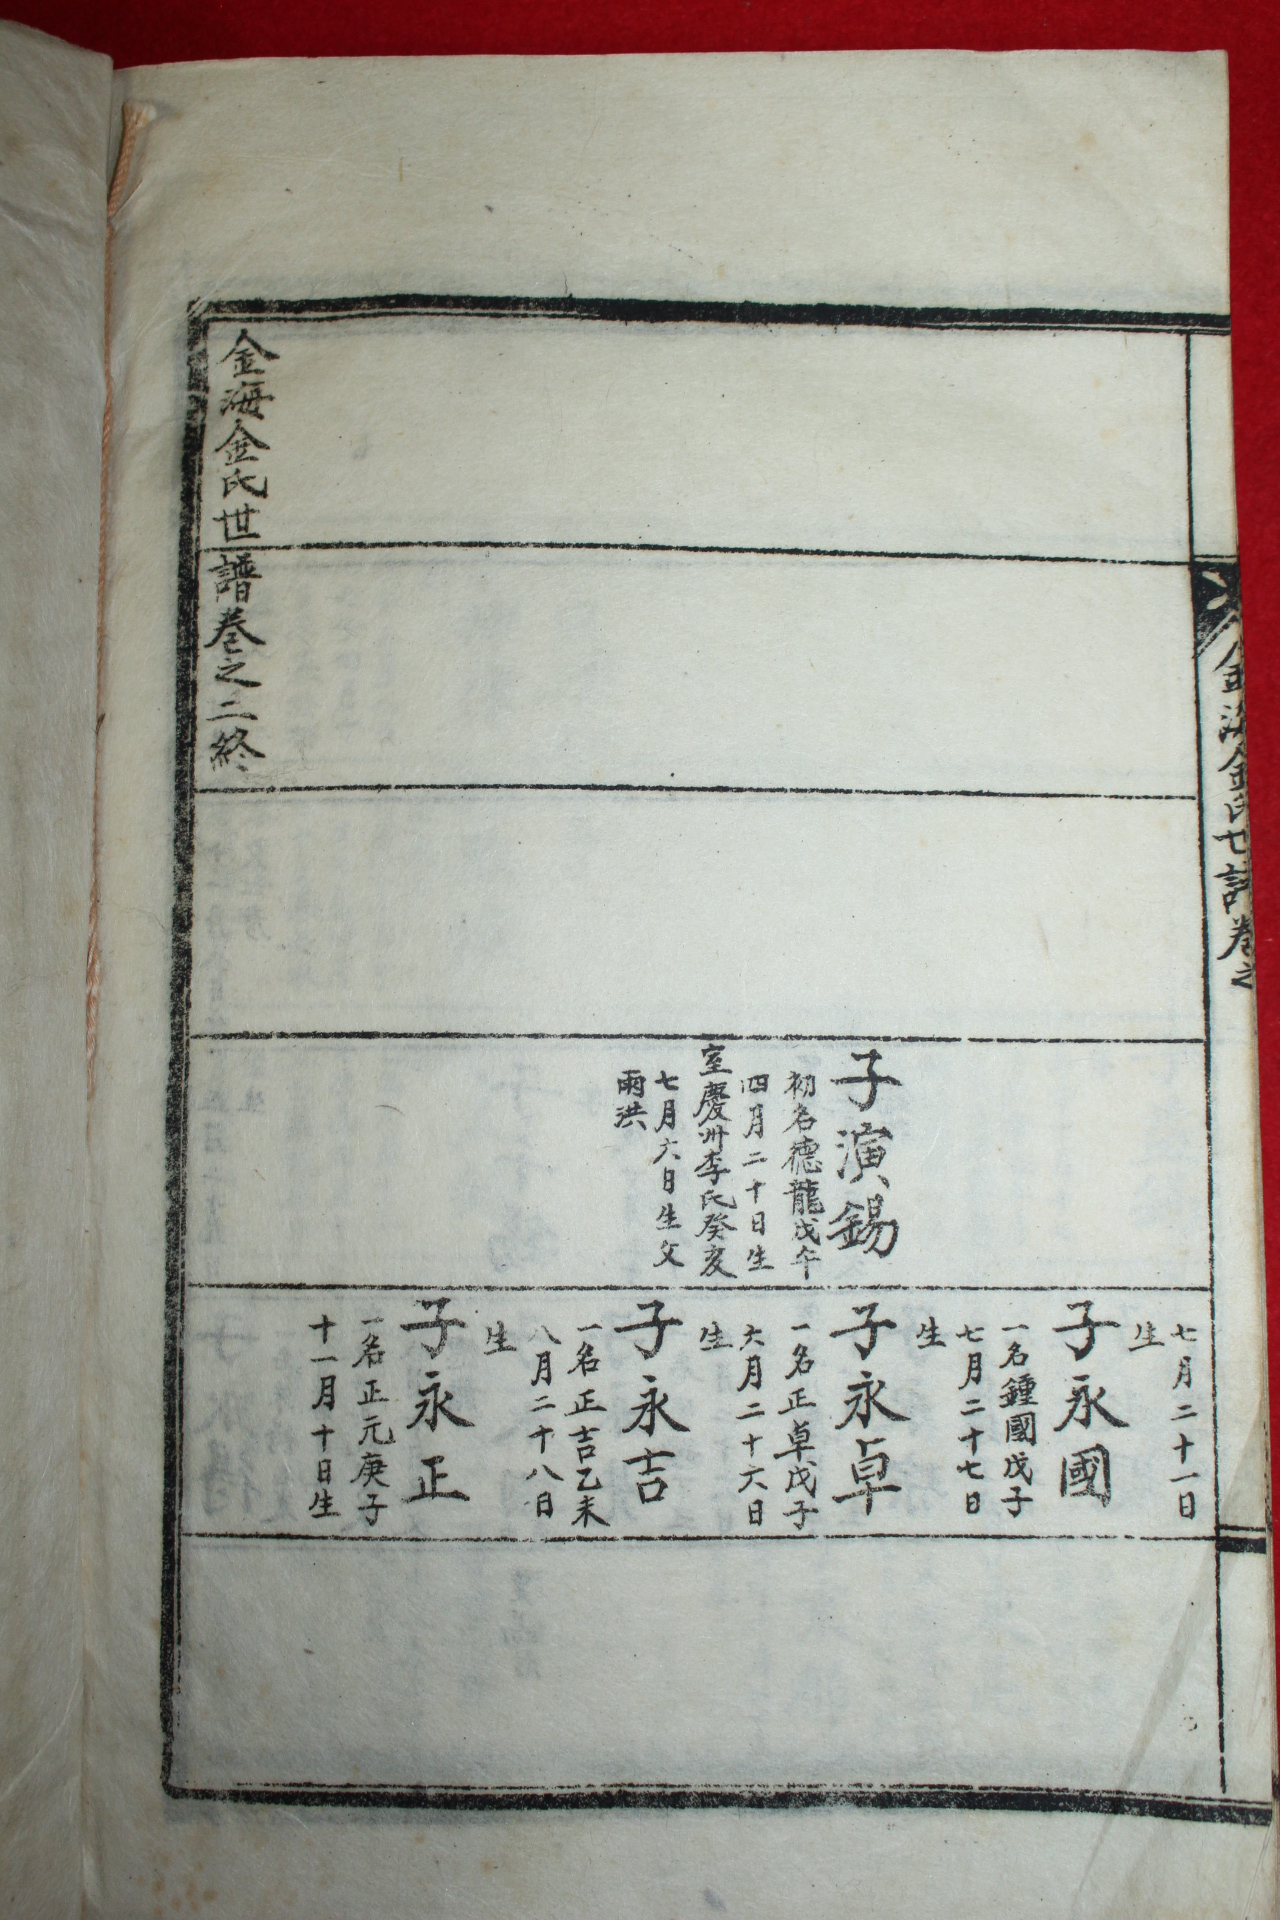 金海金氏世譜卷之
子演錫
初名德龍戊午
四月二十日生
室慶州李氏癸亥
七月六日生父
雨洪
七月二十一日
生
子永國
一名鍾國戊子
七月二十七日
生
子永卓
一名正卓戊子
六月二十六日
生
子永吉
一名正吉乙未
八月二十八日
生
子永正
一名正元庚子
十一月十日生
金海金氏世譜卷之二終